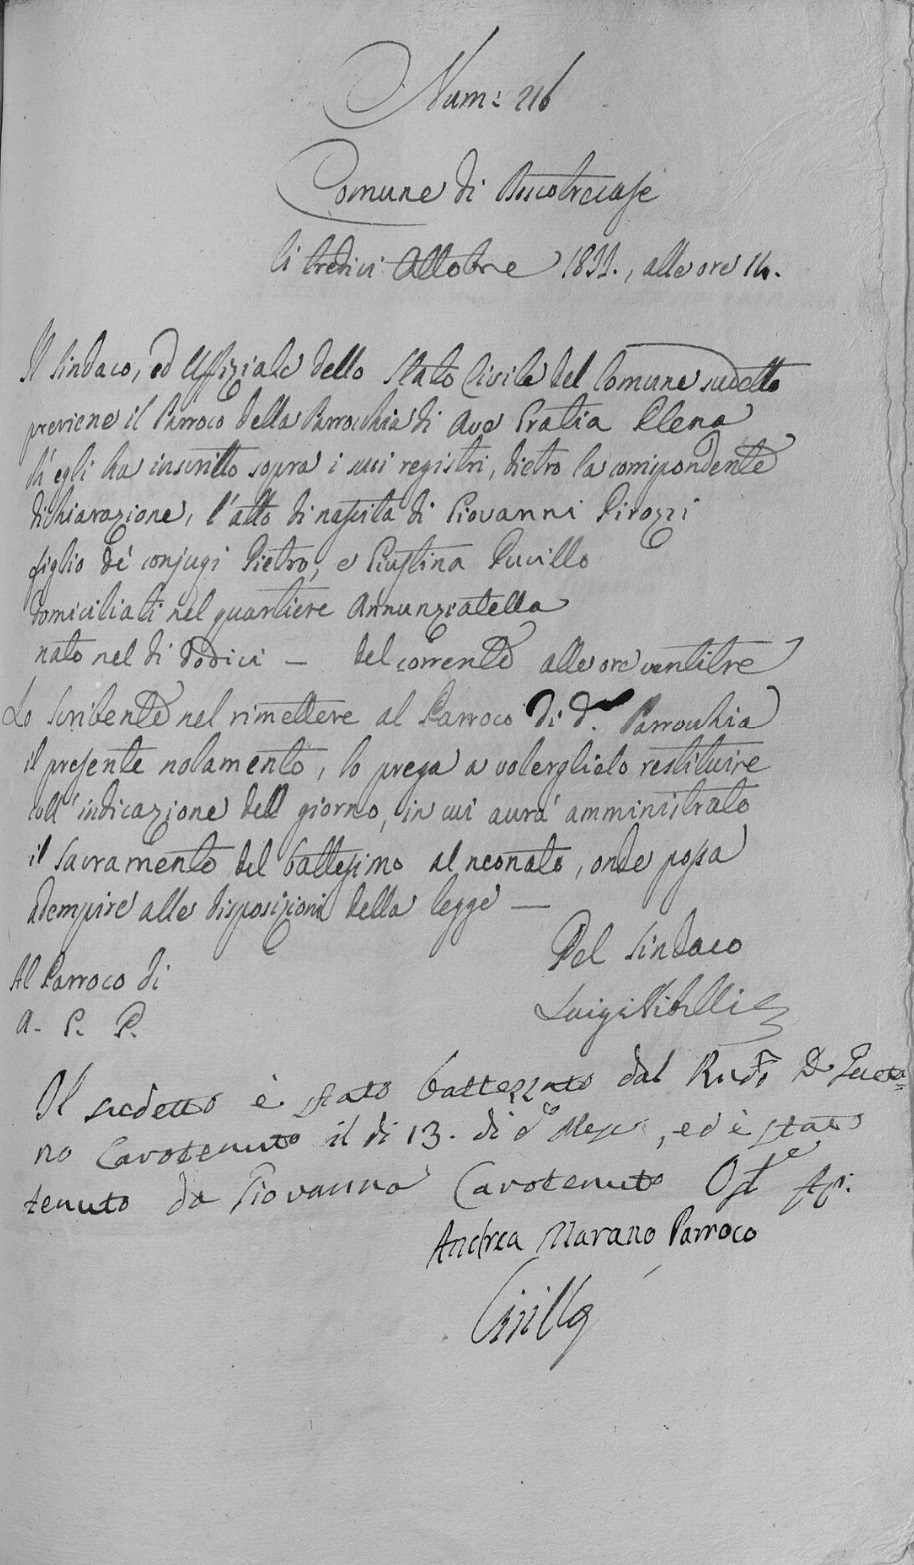 Num: 216
Comune di Boscotrecase
li tredici Ottobre 1811., alle ore 14.
Il Sindaco, ed Uffiziale dello Stato Civile del Comune sudetto
previene il Parroco della Parrocchia di Ave Gratia Plena
ch'egli ha inscritto sopra i suoi registri, dietro la corrispondente
dichiarazione, l'atto di nascita di Giovanni Pirozzi
figlio de' conjugi Pietro, e Giustina
domiciliati nel quartiere Annunziatella
nato nel di dodici — del corrente alle ore ventitre
Lo scribente nel rimettere al Parroco di d.ª Parrocchia
il presente notamento, lo prega a volerglielo restituire
coll'indicazione del giorno, in cui avrà amministrato
il Sacramento del battesimo al neonato, onde possa
adempire alle disposizioni della legge —
Pel Sindaco
Luigi Vitelli
Al Parroco di
A. G. P.
Il sudetto è stato battezzato dal Rudo D Gaeta=
no Carotenuto il di 13. di do Mese, ed è stato
tenuto da Giovanna Carotenuto Oste Ap:
Andrea Marano Parroco
Cirillo